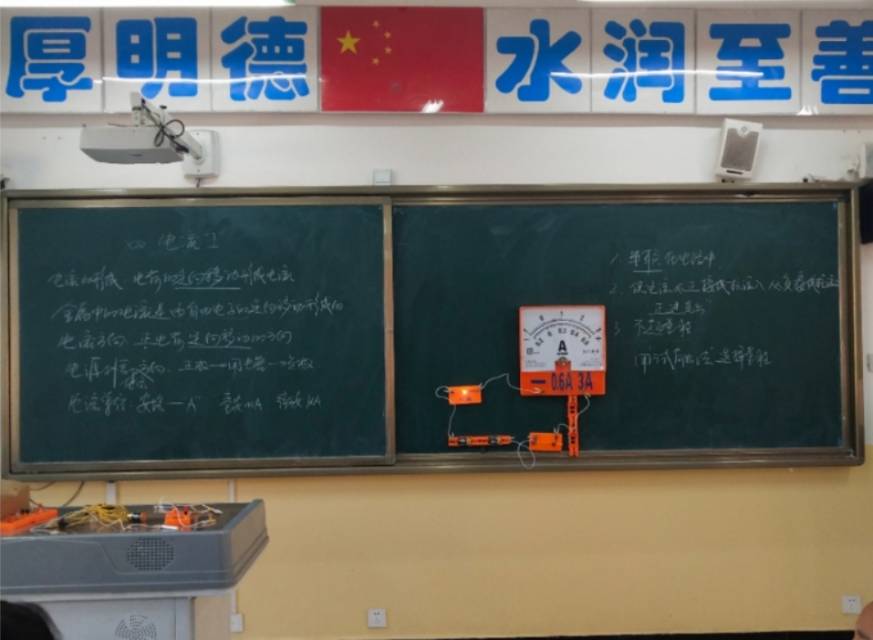 厚明德 水润至善
四 电流
电流的形成 电荷的定向移动形成电流
金属中的电流是由自由电子的定向移动形成的
电流方向 正电荷定向移动的方向
电源外 正极—用电器—负极
电流单位: 安培—A 毫安 mA 微安 μA
1. 串联 在电路中
2. 使电流从正接线柱流入 从负接线柱流出
正进负出
3 不超量程
用试触法 选择量程
A
— 0.6A 3A